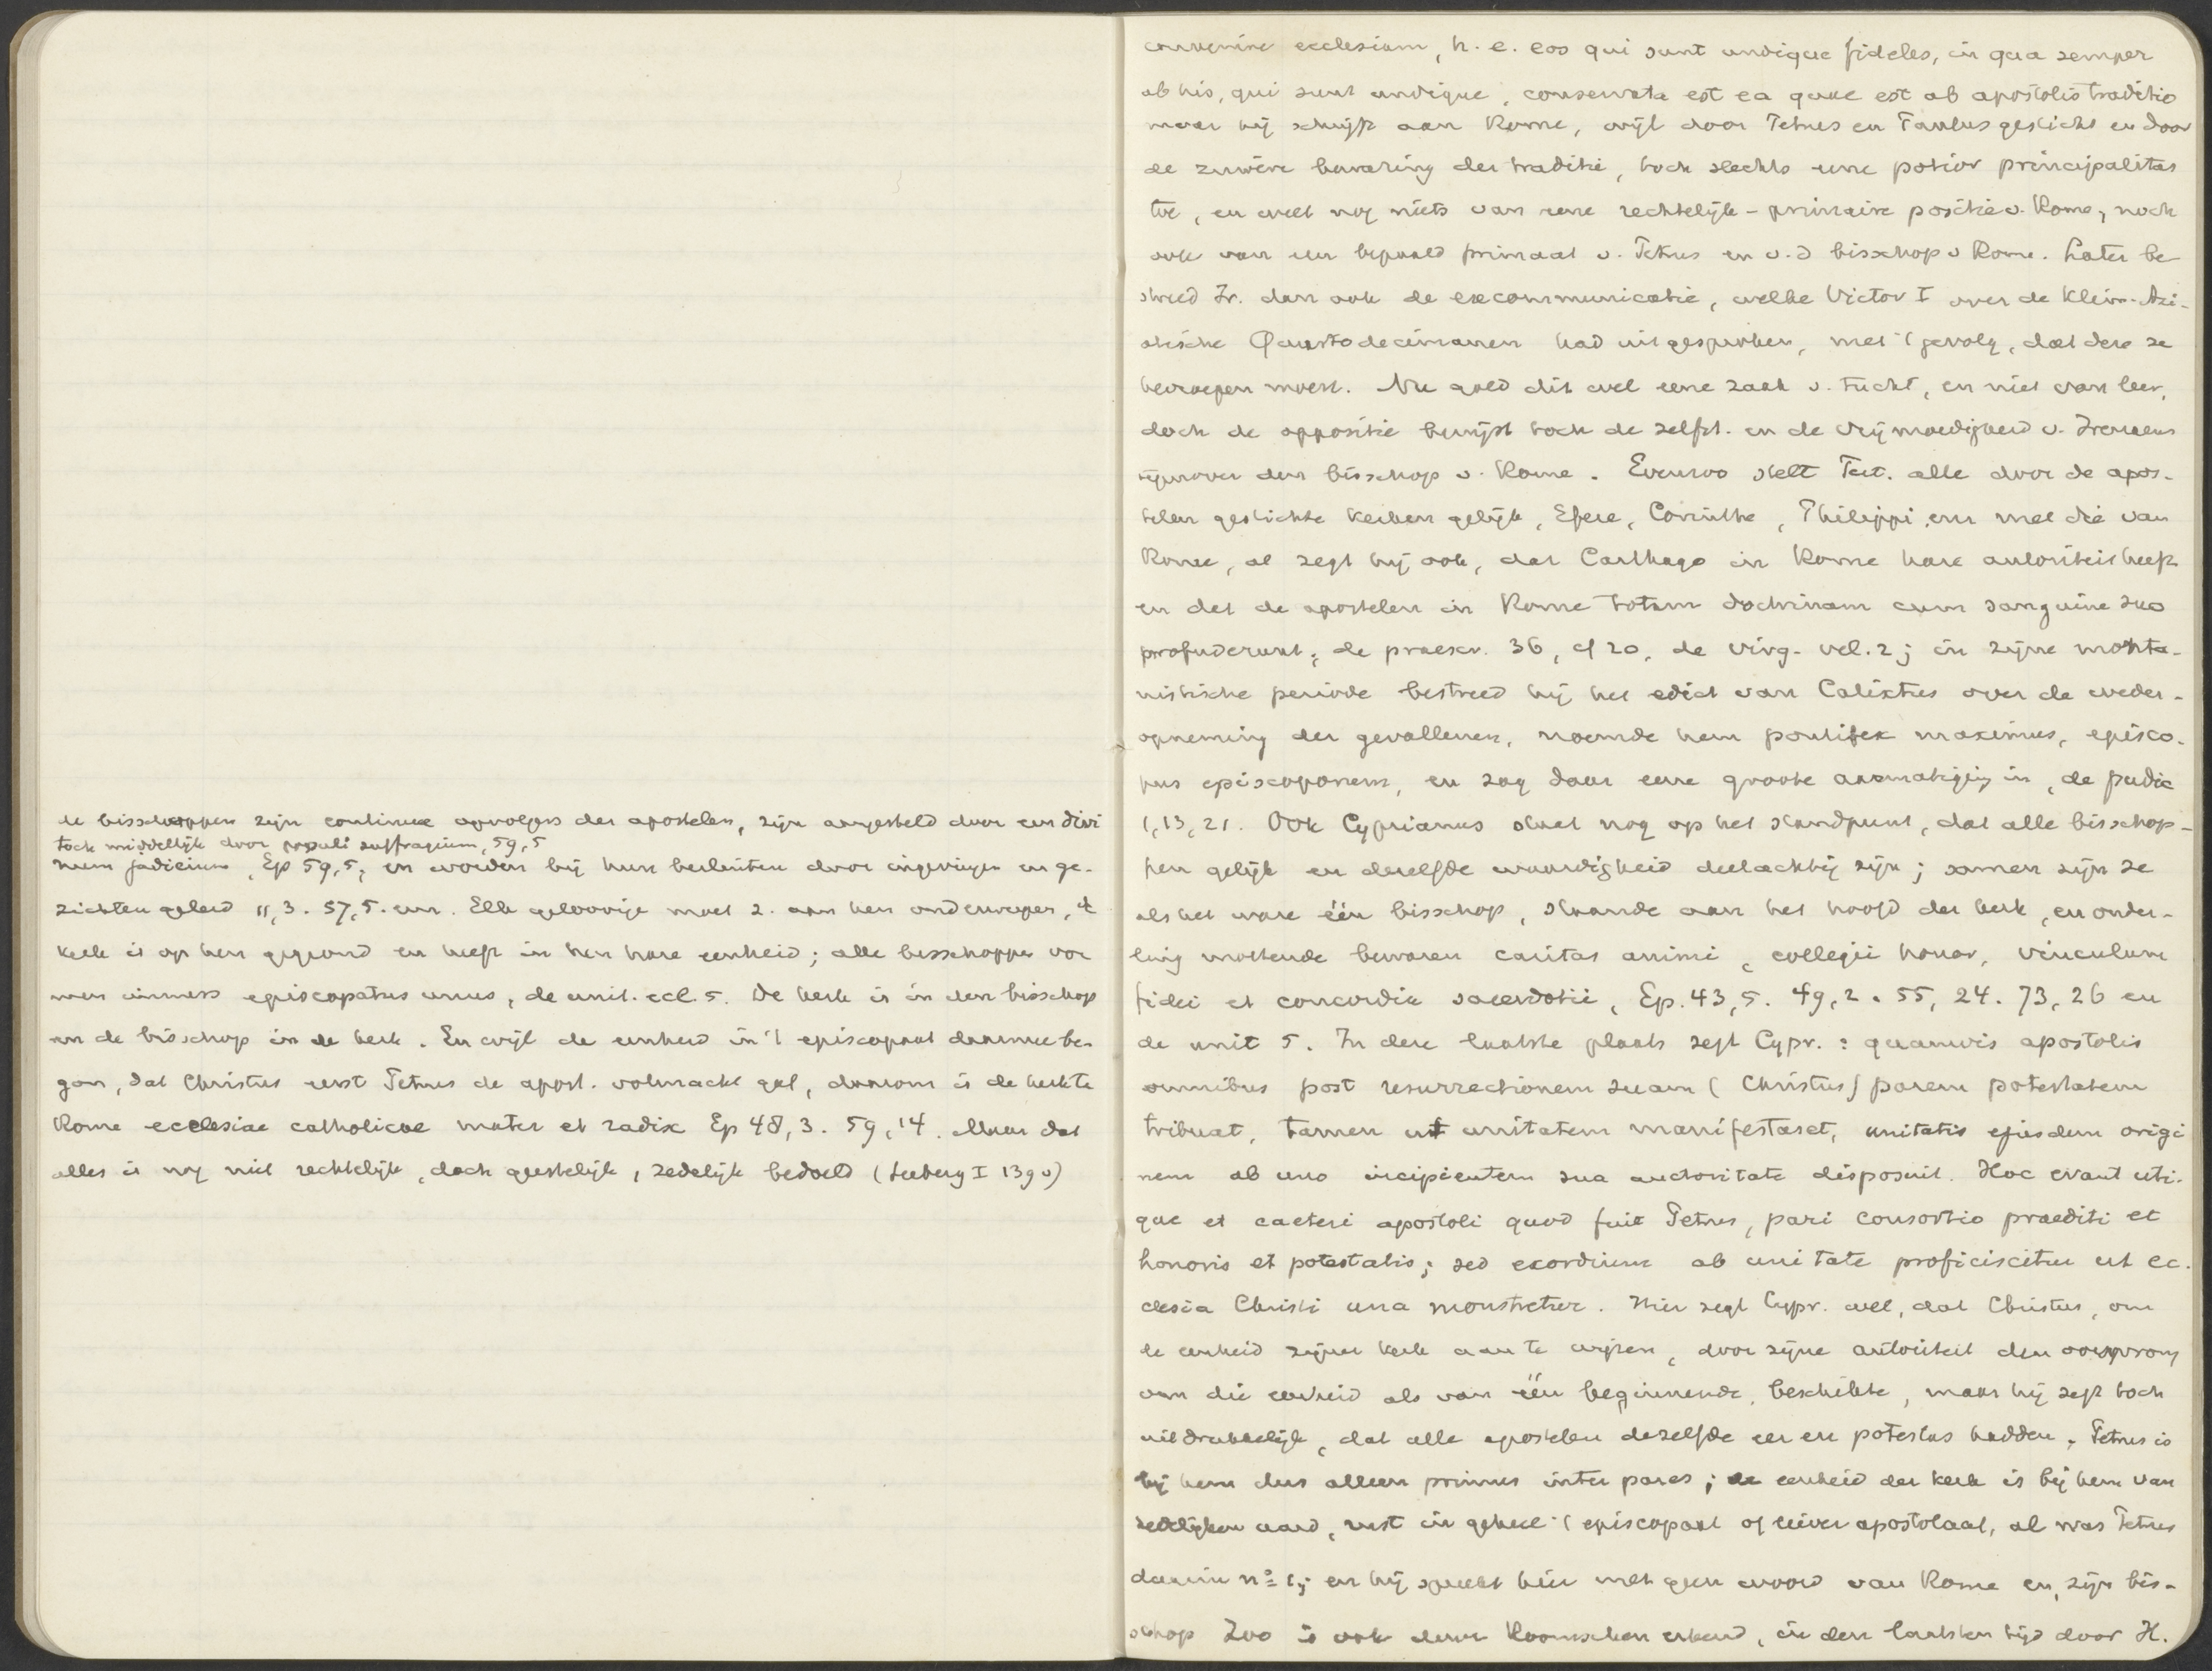 de bisschoppen zijn continue opvolgers der apostelen, zijn aangesteld door een divi
toch middellijk door populi suffragium, 59,5
num judicium, Ep 59,5, en worden bij hun besluiten door ingevingen en ge-
zichten geleid 11,3. 57,5. enz. Elk geloovige moet z. aan hen onderwerpen, d
kerk is op hen gegrond en heeft in hen hare eenheid; alle bisschoppen vor
men immers episcopatus unus, de unit. eccl. 5. De kerk is in den bisschop
en de bisschop in de kerk. En wijl de eenheid in 't episcopaat daarmee be-
gon, dat Christus eerst Petrus de apost. volmacht gaf, daarom is de kerk te
Rome ecclesiae catholicae mater et radix Ep 48,3. 59,14. Maar dat
alles is nog niet rechtelijk, doch geestelijk, zedelijk bedoeld (Seeberg I 139v)
convenire ecclesiam, h. e. eos qui sunt undique fideles, in qua semper
ab his, qui sunt undique, conservata est ea quae est ab apostolis traditio
maar hij schrijft aan Rome, wijl door Petrus en Paulus gesticht en door
de zuivere bewaring der traditie, toch slechts eene potior principalitas
toe, en weet nog niets van eene rechtelijk-primaire positie v. Rome, noch
ook van een bepaald primaat v. Petrus en v. d bisschop v Rome. Later be
streed Ir. dan ook de excommunicatie, welke Victor I over de Klein-Azi-
atische Quartodecimanen had uitgesproken, met 't gevolg, dat deze ze
herroepen moest. Nu gold dit wel eene zaak v. tucht, en niet van leer,
doch de oppositie bewijst toch de zelfst. en de vrijmoedigheid v. Irenaeus
tegenover den bisschop v. Rome. Evenzoo stelt Tert. alle door de apos-
telen gestichte kerken gelijk, Efeze, Corinthe, Philippi enz met die van
Rome, al zegt hij ook, dat Carthago in Rome hare autoriteit heeft
en dat de apostelen in Rome totam doctrinam cum sanguine suo
profuderunt, de praescr. 36, cf 20, de virg. vel. 2; in zijne monta-
nistische periode bestreed hij het edict van Calixtus over de weder-
opneming der gevallenen, noemde hem pontifex maximus, episco-
pus episcoporum, en zag daar eene groote aanmatiging in, de pudic
1,13,21. Ook Cyprianus staat nog op het standpunt, dat alle bisschop-
pen gelijk en dezelfde waardigheid deelachtig zijn; samen zijn ze
als het ware één bisschop, staande aan het hoofd der kerk, en onder-
ling moetende bewaren caritas animi, collegii honor, vinculum
fidei et concordia sacerdotii, Ep. 43,5. 49,2. 55, 24. 73, 26 en
de unit 5. In deze laatste plaats zegt Cypr.: quamvis apostolis
omnibus post resurrectionem suam (Christus) parem potestatem
tribuat, tamen ut unitatem manifestaret, unitatis ejusdem origi
nem ab uno incipientem sua auctoritate disposuit. Hoc erant uti-
que et caeteri apostoli quod fuit Petrus, pari consortio praediti et
honoris et potestatis; sed exordium ab unitate proficiscitur ut ec-
clesia Christi una monstretur. Hier zegt Cypr. wel, dat Christus, om
de eenheid zijner kerk aan te wijzen, door zijne autoriteit den oorsprong
van die eenheid als van één beginnende, beschikte, maar hij zegt toch
uitdrukkelijk, dat alle apostelen dezelfde eer en potestas hadden. Petrus is
bij hem dus alleen primus inter pares; de eenheid der kerk is bij hem van
zedelijken aard, rust in geheel 't episcopaat of liever apostolaat, al was Petrus
daarin nº 1; en hij spreekt hier met geen woord van Rome en zijn bis-
schop Zoo is ook door Roomschen erkend, in den laatsten tijd door H.